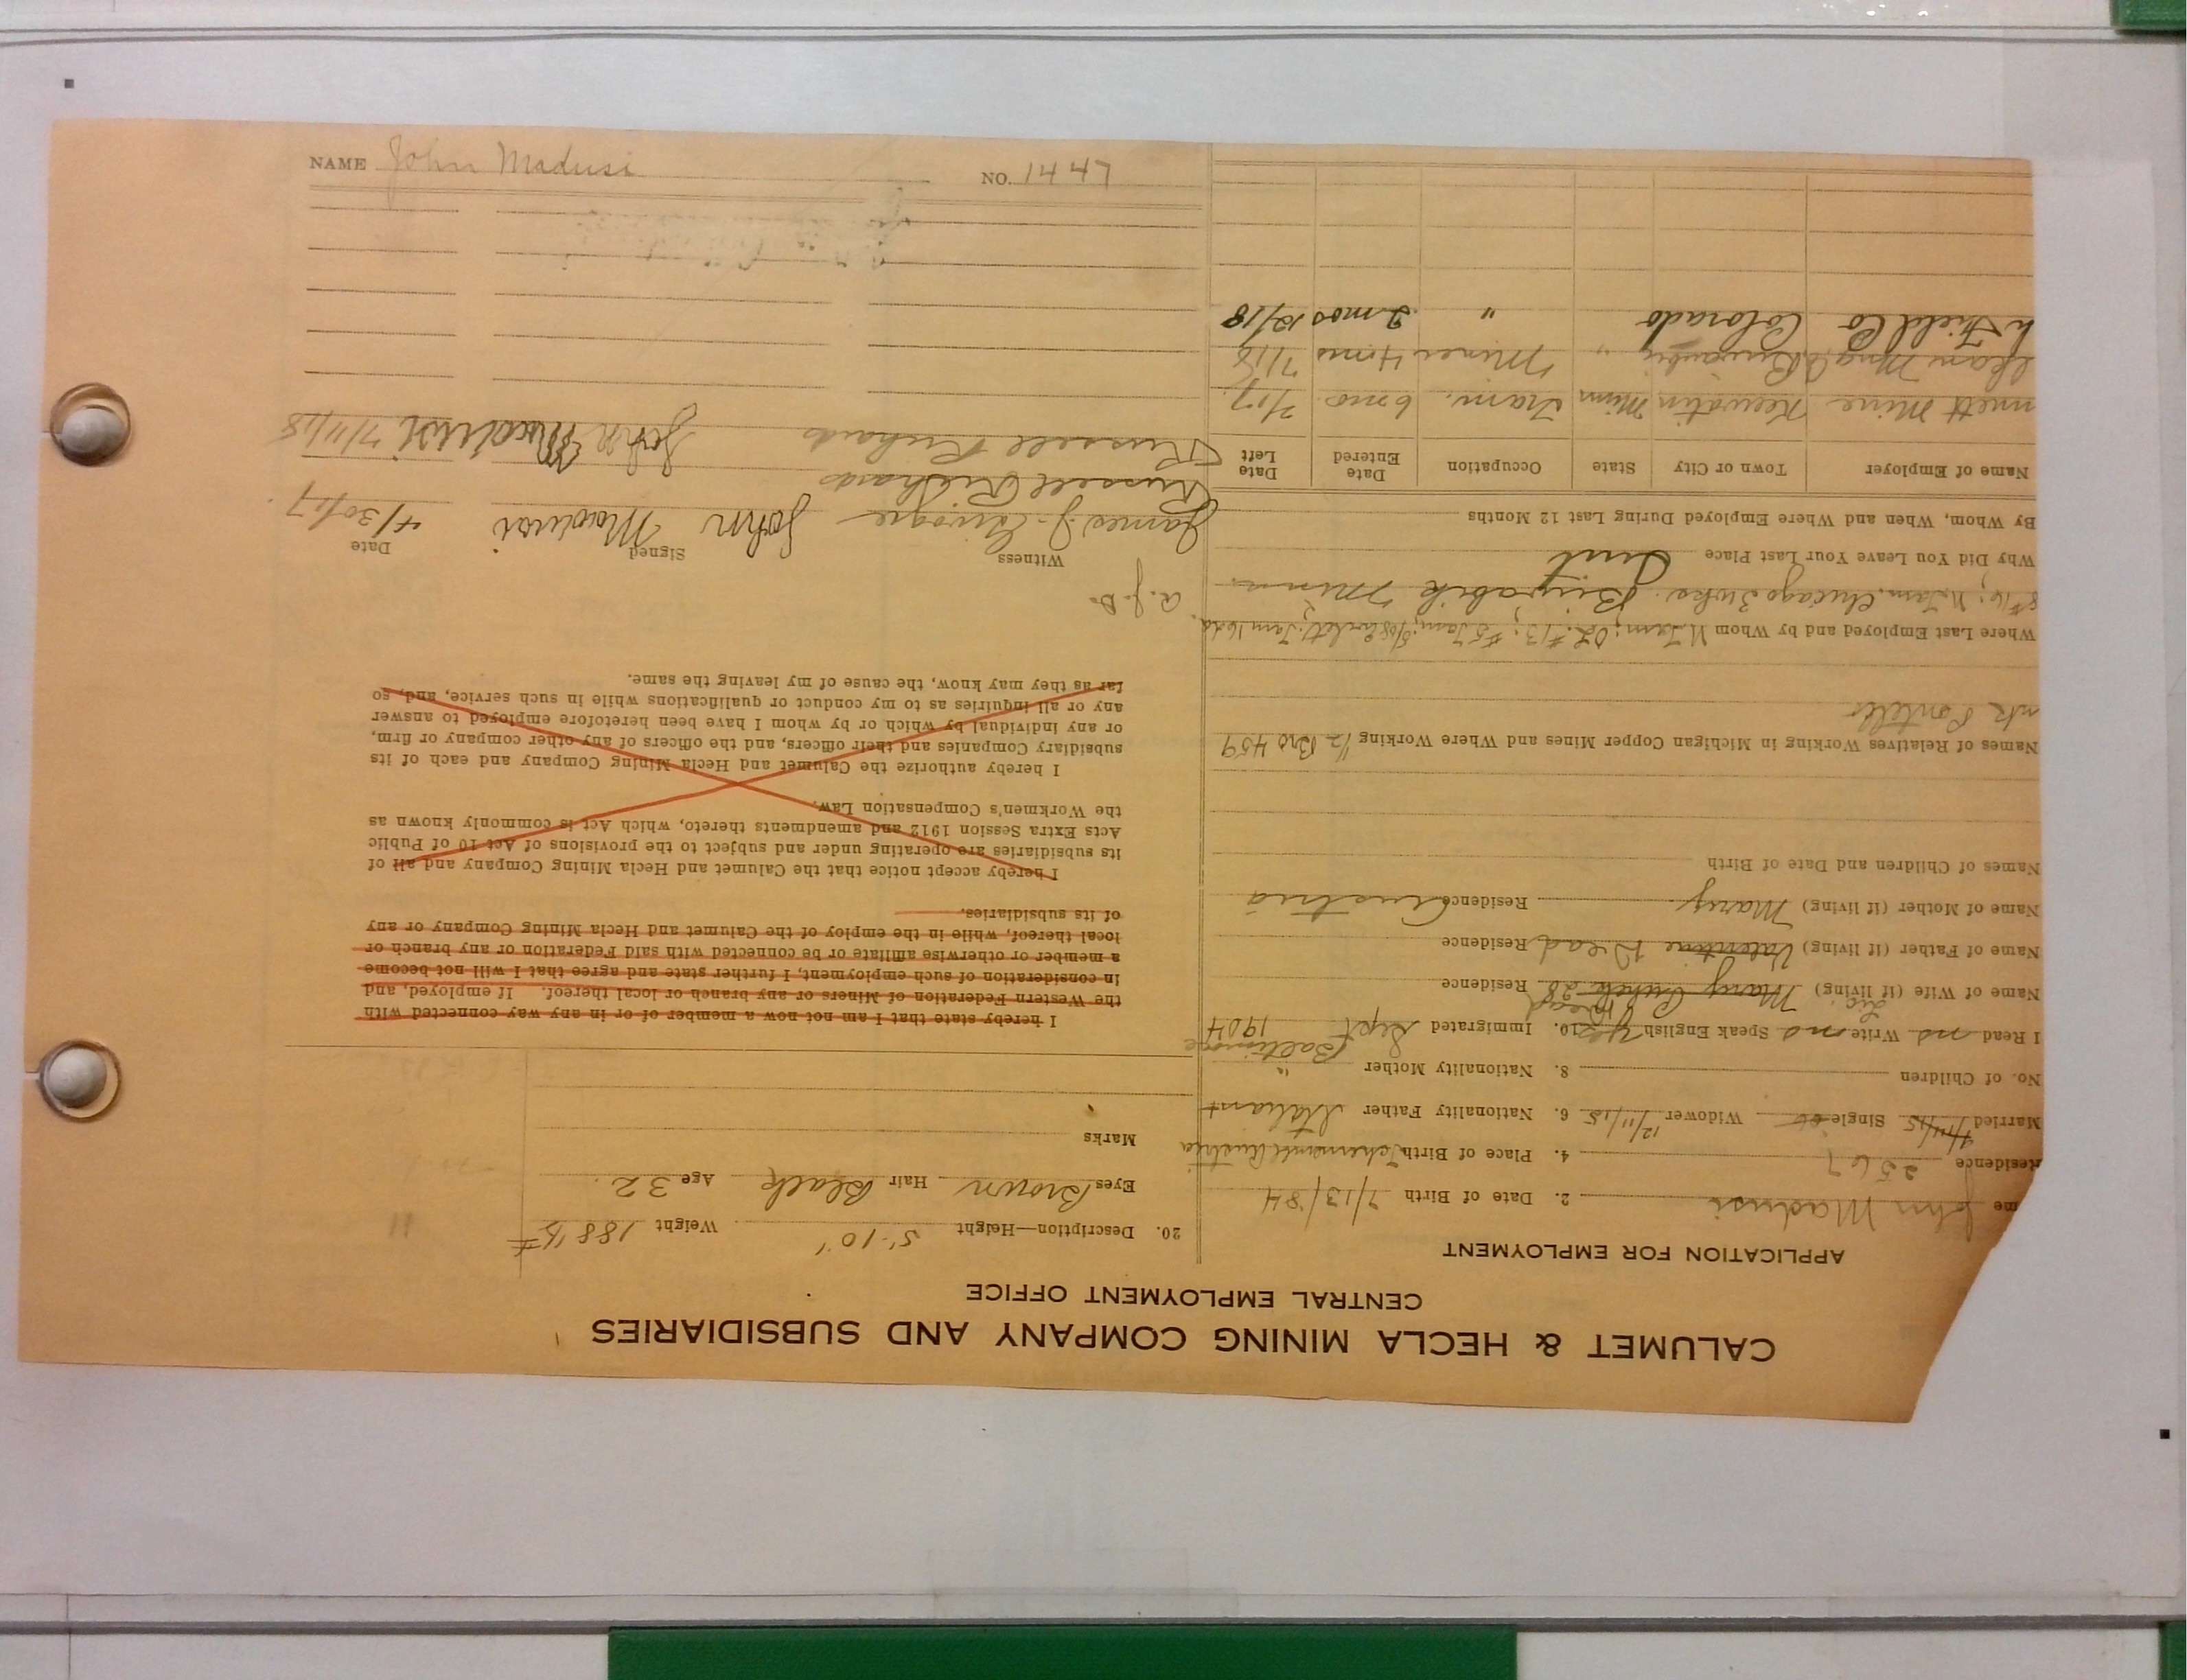 CALUMET & HECLA MINING COMPANY AND SUBSIDIARIES
CENTRAL EMPLOYMENT OFFICE
APPLICATION FOR EMPLOYMENT
me John Madusi 2. Date of Birth 7/13/84
Residence 2567 4. Place of Birth Austria
Married 7/11/15 Single Widower 12/11/15 6. Nationality Father Italian
No. of Children 8. Nationality Mother "
Baltimore
I Read no Write no Speak English yes 10. Immigrated Sept 1904
Name of Wife (if living) Mary 28 Dead Residence
Name of Father (if living) Valentine Dead Residence
Name of Mother (if living) Mary Residence Austria
Names of Children and Date of Birth
Names of Relatives Working in Michigan Copper Mines and Where Working 1/2 Bro 459
Where Last Employed and by Whom N. Tam;
Chicago 3 wks. Biwabik Minn.
Why Did You Leave Your Last Place Quit
By Whom, When and Where Employed During Last 12 Months
Name of Employer Town or City State Occupation Date Entered Date Left
nnett Mine Keewatin Minn Tram. 6 mo. 7/17
Mng Co Biwabik " Miner 4 mos 7/18
Field Co Colorado " 2 mos 12/18
20. Description—Height 5'-10" Weight 188 1/2 #
Eyes Brown Hair Black Age 32
Marks
I hereby state that I am not now a member of or in any way connected with
the Western Federation of Miners or any branch or local thereof. If employed, and
in consideration of such employment, I further state and agree that I will not become
a member or otherwise affiliate or be connected with said Federation or any branch or
local thereof, while in the employ of the Calumet and Hecla Mining Company or any
of its subsidiaries.
I hereby accept notice that the Calumet and Hecla Mining Company and all of
its subsidiaries are operating under and subject to the provisions of Act 10 of Public
Acts Extra Session 1912 and amendments thereto, which Act is commonly known as
the Workmen's Compensation Law.
I hereby authorize the Calumet and Hecla Mining Company and each of its
subsidiary Companies and their officers, and the officers of any other company or firm,
or any individual by which or by whom I have been heretofore employed to answer
any or all inquiries as to my conduct or qualifications while in such service, and, so
far as they may know, the cause of my leaving the same.
a.j.D.
Witness Signed Date
James J. John Madusi 4/30/17
Russell Richards
Russell Richards John Madusi 7/11/18
NAME John Madusi NO. 1447